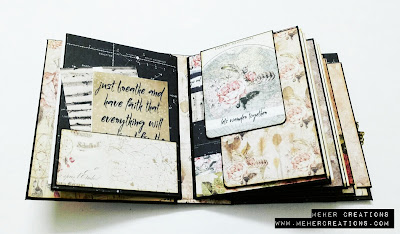 just breathe and
have faith that
everything will
let's wander together
MEHER CREATIONS
WWW.MEHERCREATIONS.COM